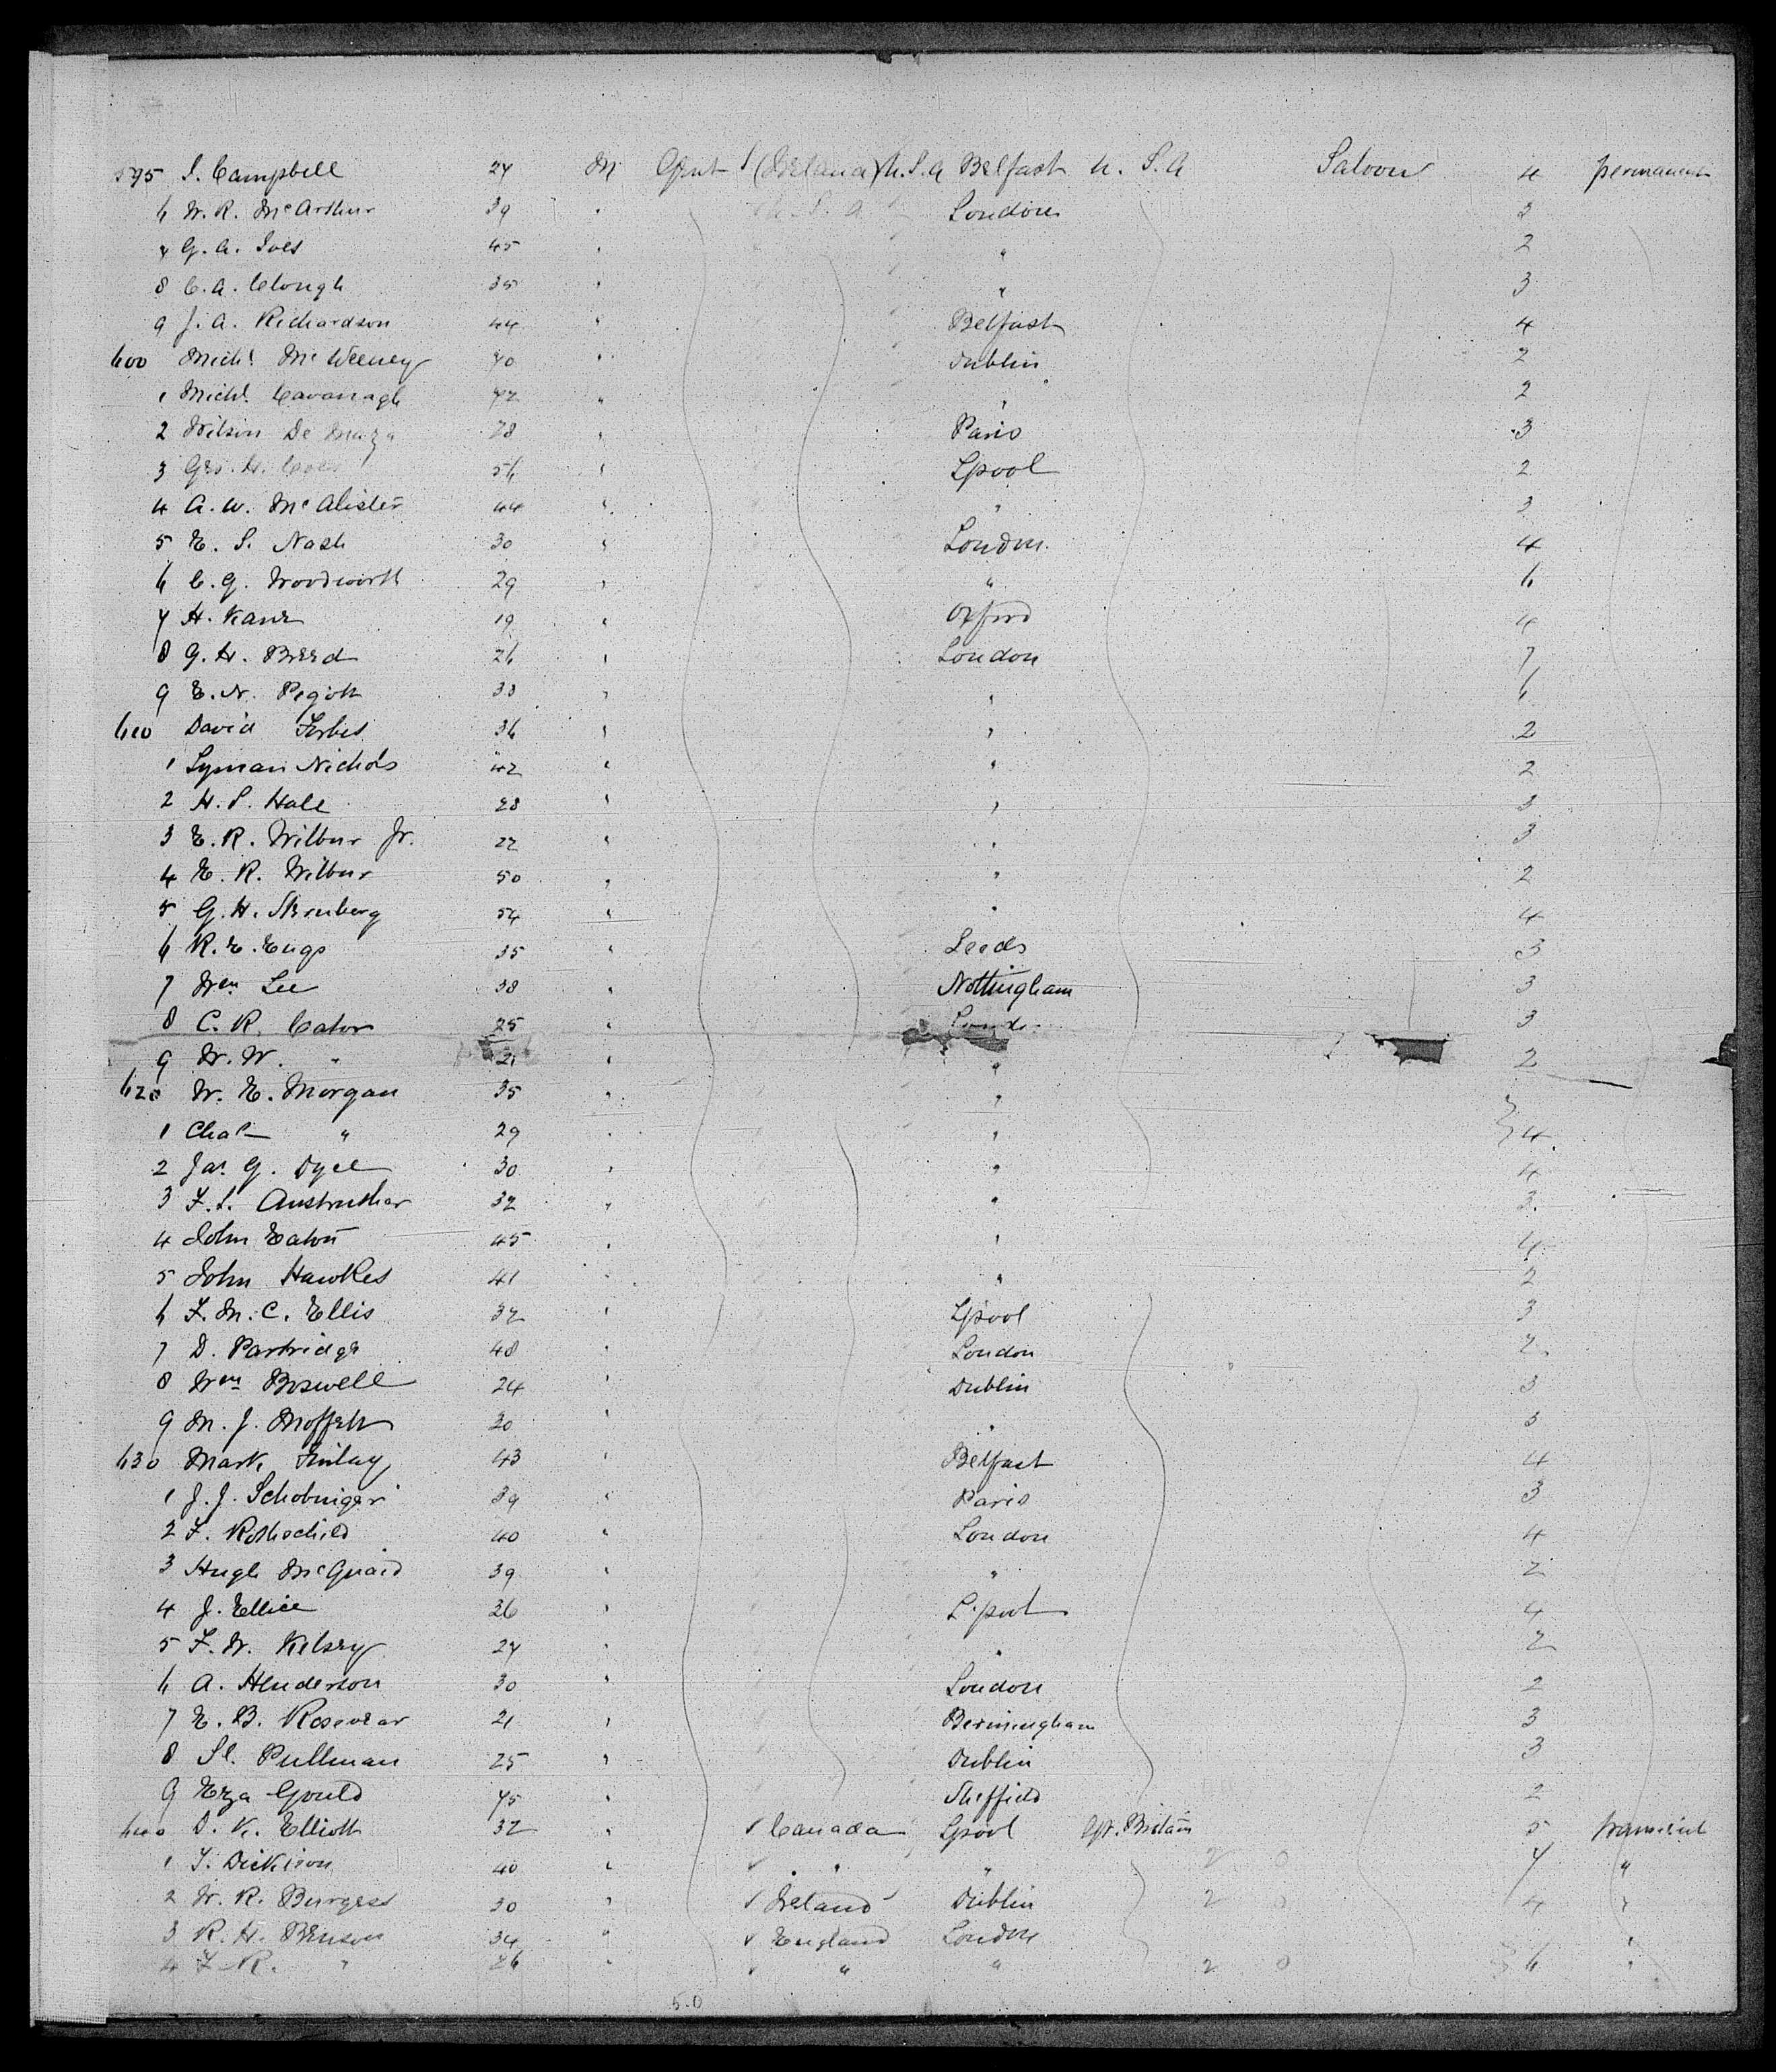 595 S. Campbell 24 M Gent (Ireland) U.S.A Belfast U. S. A Saloon 4 permanent
6 W. R. McArthur 39 " U. S. A London 2
7 G. A. Ives 45 " " 2
8 C. A. Clough 35 " " 3
9 J. A. Richardson 44 " Belfast 4
600 Michl McWeeney 40 " Dublin 2
1 Michl. Cavanagh 42 " " 2
2 Wilson De 28 " Paris 3
3 Geo. H. 56 " Lpool 2
4 A. W. McAlister 44 " " 3
5 E. S. Nash 30 " London 4
6 C. G. Woodworth 29 " " 6
7 H. Kane 19 " Oxford 4
8 G. H. Breed 26 " London 7
9 E. N. 38 " " 6
610 David Forbes 36 " " 2
1 Lyman Nichols 42 " " 2
2 H. S. Hale 28 " " 3
3 E. R. Wilbur Jr. 22 " " 3
4 E. R. Wilbur 50 " " 2
5 G. H. 54 " " 4
6 R. E. Engs 35 " Leeds 3
7 Wm Lee 38 " Nottingham 3
8 C. R. Cator 25 " 3
9 W. W. " 21 " " 2
620 W. E. Morgan 35 " "
1 Chas " 29 " " 4
2 Jas. G. Dyce 30 " " 4
3 F. S. Anstruther 32 " " 3
4 John Eaton 45 " " 4
5 John Hawkes 41 " " 2
6 F. M. C. Ellis 32 " Lpool 3
7 D. Partridge 48 " London 2
8 Wm Boswell 24 " Dublin 3
9 M. J. Moffett 30 " " 3
630 Mark Finlay 43 " Belfast 4
1 J. J. Schobinger 39 " Paris 3
2 F. Rothschild 40 " London 4
3 Hugh McQuaid 39 " " 2
4 J. Ellice 36 " L'pool 4
5 F. W. Kelsey 27 " " 2
6 A. Henderson 30 " London 2
7 E. B. Rosevear 21 " Bermingham 3
8 Sl. Pullman 25 " Dublin 3
9 Eza Gould 45 " Sheffield 2
640 D. K. Elliott 32 " Canada Lpool Gt. Britain 5 transient
1 T. Dickison 40 " " " 2 0 7 "
2 W. R. Burgess 30 " Ireland Dublin 2 0 4 "
3 R. H. Benson 34 " England London "
4 F. R. " 26 " " " 2 0 6 "
5.0